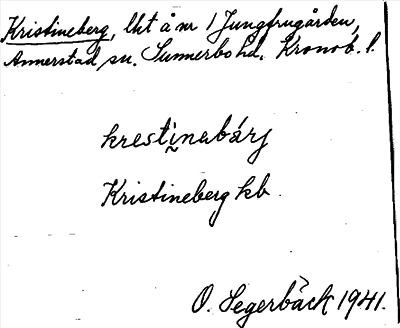 Kristineberg, lht å nr 1 Jungfrugården,
Annerstad sn. Sunnerbo hd. Kronob. l.
krestinabärj
Kristineberg kb.
O. Segerbäck 1941.